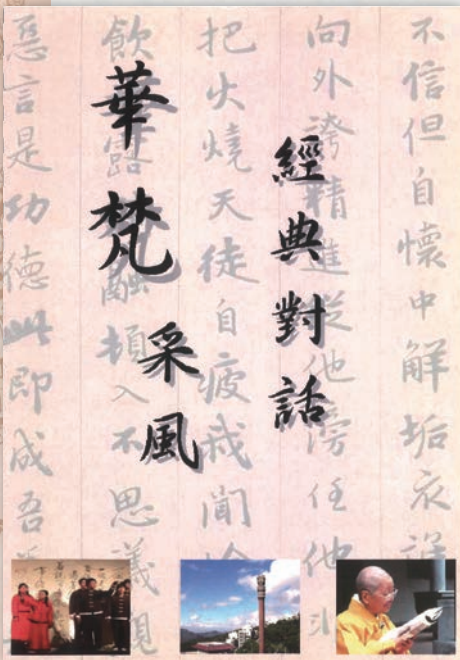 經典對話
華梵
采風
不信但自懷中解垢衣誰
向外誇精進從他謗任他非
把火燒天徒自疲我聞恰
飲露融頓入不思議觀
惡言是功德此即成吾